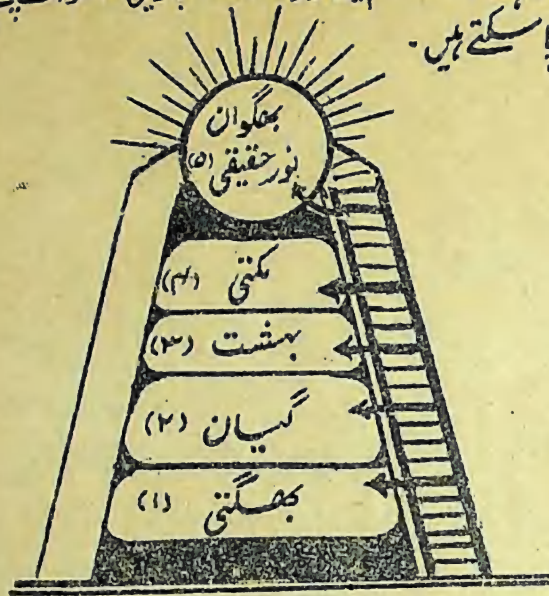 پا سکتے ہیں ۔
بھگوان
نورِ حقیقی (۵)
مکتی (۴)
بہشت (۳)
گیان (۲)
بھگتی (۱)